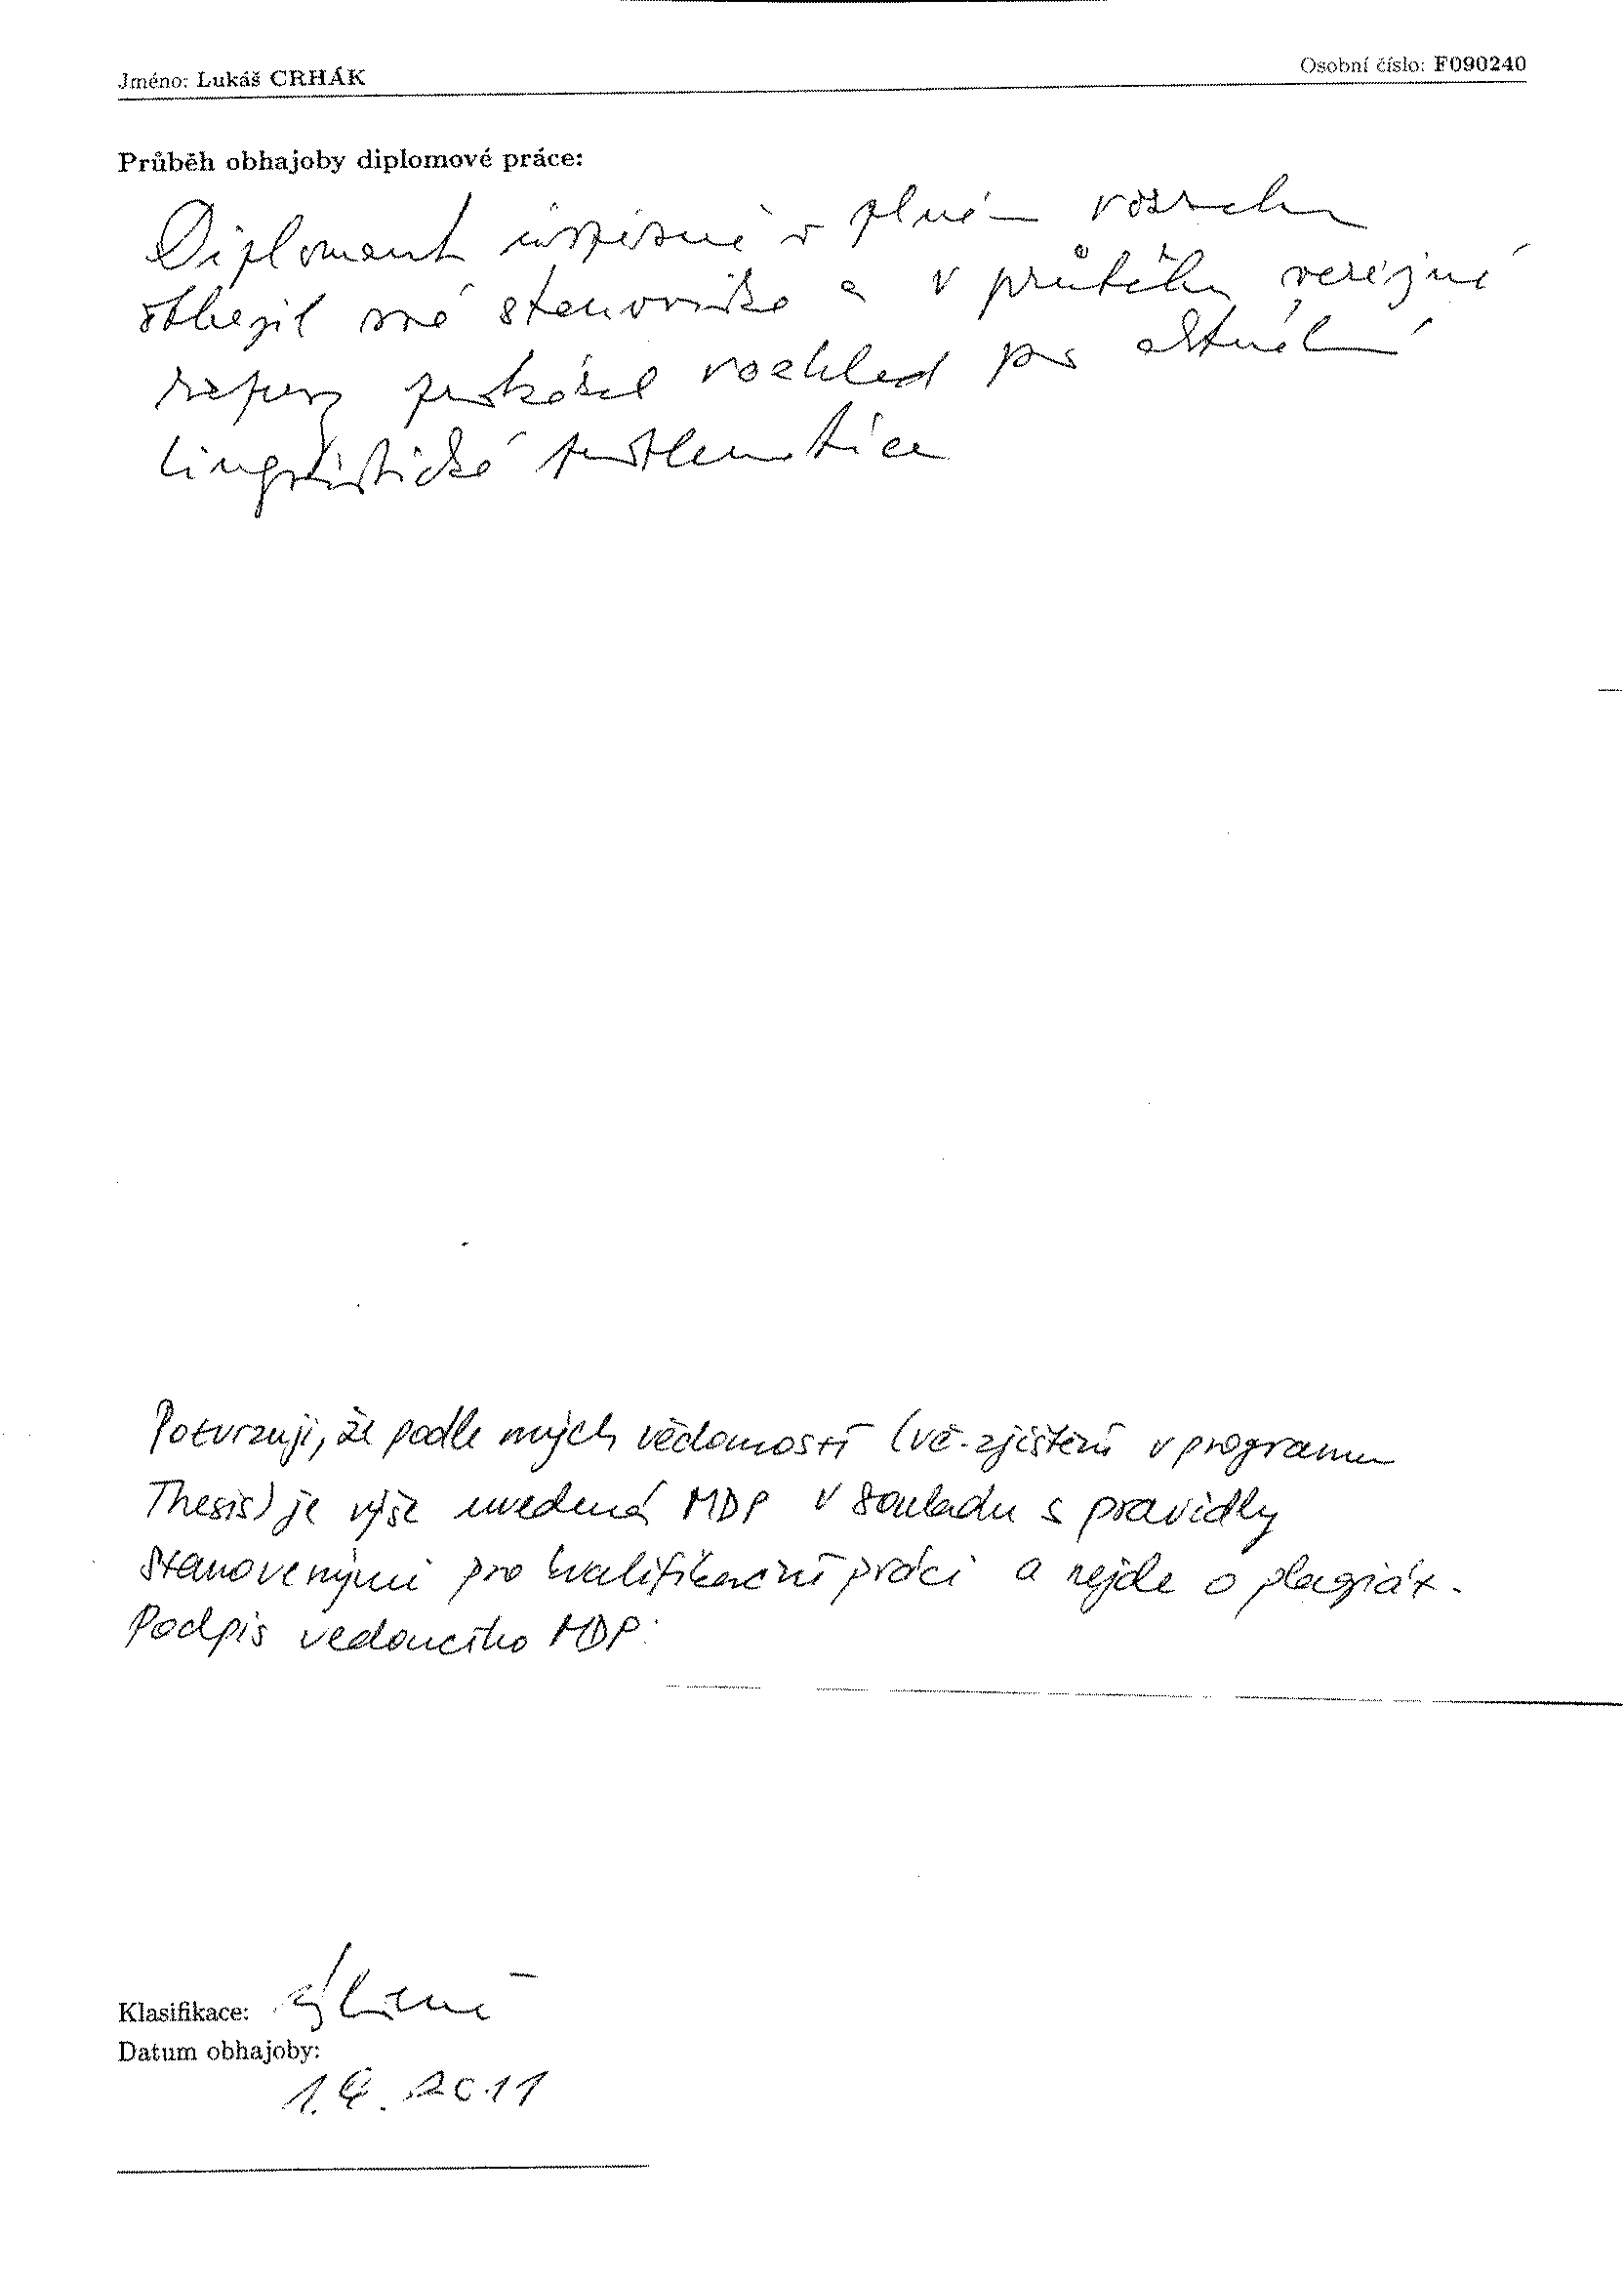 Jméno: Lukáš CRHÁK
Osobní číslo: F090240
Průběh obhajoby diplomové práce:
Diplomant úspěšně v plném rozsahu
obhájil své stanovisko a v průběhu veřejné
rozpravy prokázal rozhled po aktuální
lingvistické problematice
Potvrzuji, že podle mých vědomostí (vč. zjištění v programu
Thesis) je výše uvedená MDP v souladu s pravidly
stanovenými pro kvalifikační práci a nejde o plagiát.
Podpis vedoucího MDP:
Klasifikace: výborně
Datum obhajoby:
2011